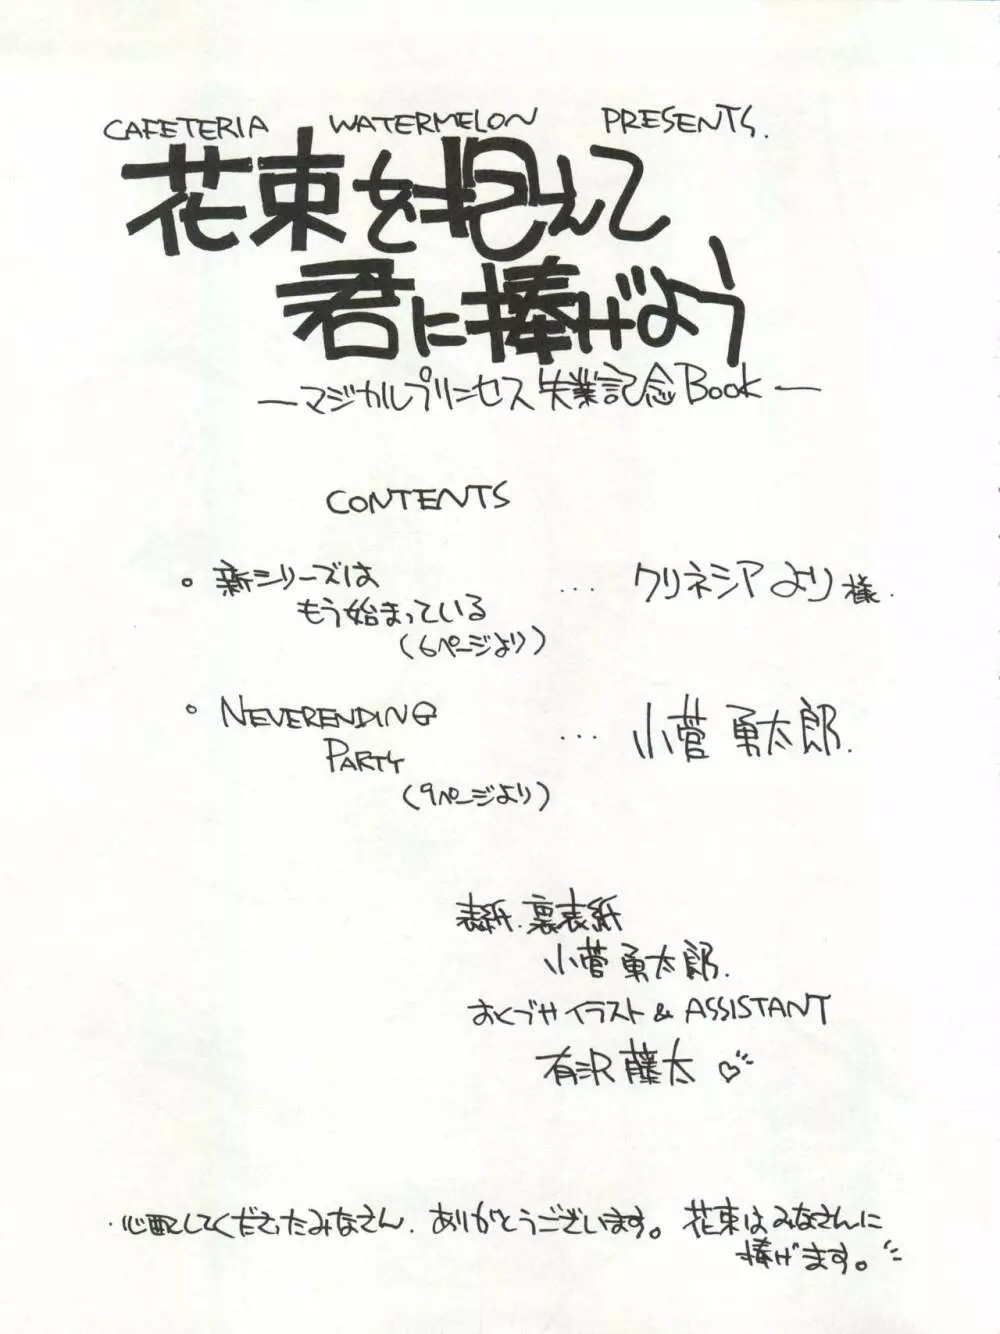 CAFETERIA WATERMELON PRESENTS.
花束を抱えて
君に捧げよう
―マジカルプリンセス失業記念Book―
CONTENTS
・新シリーズは
もう始まっている … クリネシアより様.
(6ページより)
・NEVERENDING
PARTY … 小菅勇太郎.
(9ページより)
表紙.裏表紙
小菅勇太郎.
おくづけイラスト & ASSISTANT
有沢藤太♡
・心配してくださったみなさん.ありがとうございます。花束はみなさんに
捧げます。